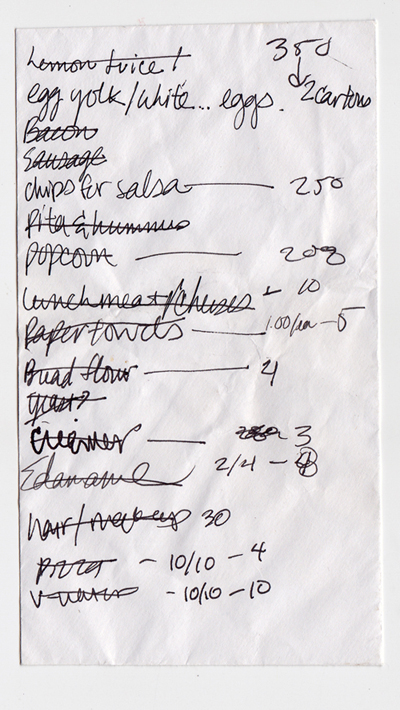 Lemon Juice! 350
egg yolk/white... eggs. 2 cartons
Bacon
Sausage
chips for salsa 250
Pita & hummus
popcorn 200
lunchmeat/cheeses 10
Paper towels 1.00/ea - 5
Bread flour 4
Yeast?
Creamer 3
Edamame 2/4 -
hair/makeup 30
pizza - 10/10 - 4
- 10/10 - 10